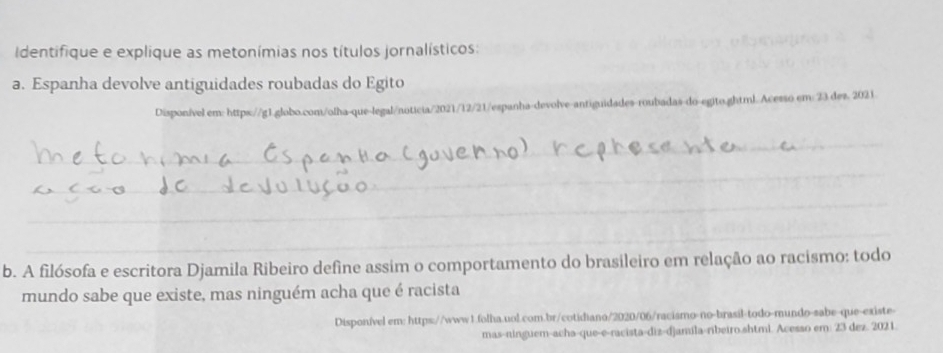 Identifique e explique as metonímias nos títulos jornalísticos:
a. Espanha devolve antiguidades roubadas do Egito
Disponível em: https://g1.globo.com/olha-que-legal/noticia/2021/12/21/espanha-devolve-antiguidades-roubadas-do-egito.ghtml. Acesso em: 23 dez. 2021.
Metonimia Espanha (governo) representa a
acção de devolução.
b. A filósofa e escritora Djamila Ribeiro define assim o comportamento do brasileiro em relação ao racismo: todo
mundo sabe que existe, mas ninguém acha que é racista
Disponível em: https://www1.folha.uol.com.br/cotidiano/2020/06/racismo-no-brasil-todo-mundo-sabe-que-existe-
mas-ninguem-acha-que-e-racista-diz-djamila-ribeiro.shtml. Acesso em: 23 dez. 2021.